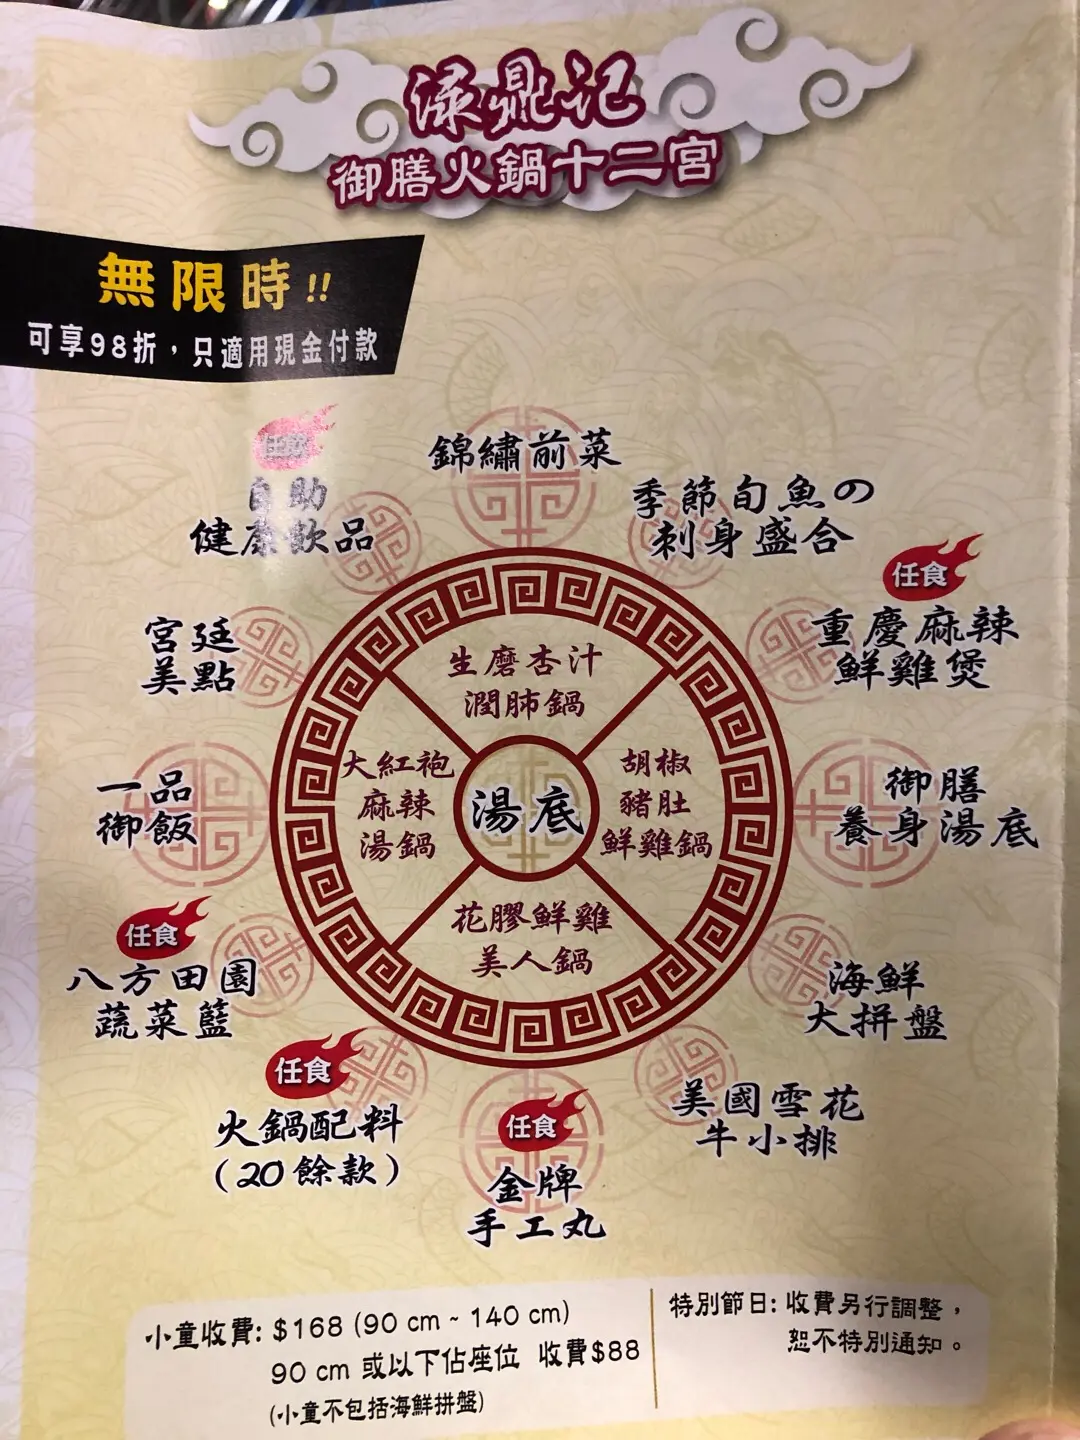 渌鼎记
御膳火鍋十二宮
無限時!!
可享98折，只適用現金付款
錦繡前菜
季節旬魚の
刺身盛合
任食
重慶麻辣
鮮雞煲
御膳
養身湯底
海鮮
大拼盤
美國雪花
牛小排
任食
金牌
手工丸
任食
火鍋配料
(20餘款)
任食
八方田園
蔬菜籃
一品
御飯
宮廷
美點
任飲
自助
健康飲品
湯底
生磨杏汁
潤肺鍋
胡椒
豬肚
鮮雞鍋
花膠鮮雞
美人鍋
大紅袍
麻辣
湯鍋
小童收費: $168 (90 cm ~ 140 cm)
90 cm 或以下佔座位 收費$88
(小童不包括海鮮拼盤)
特別節日: 收費另行調整，
恕不特別通知。